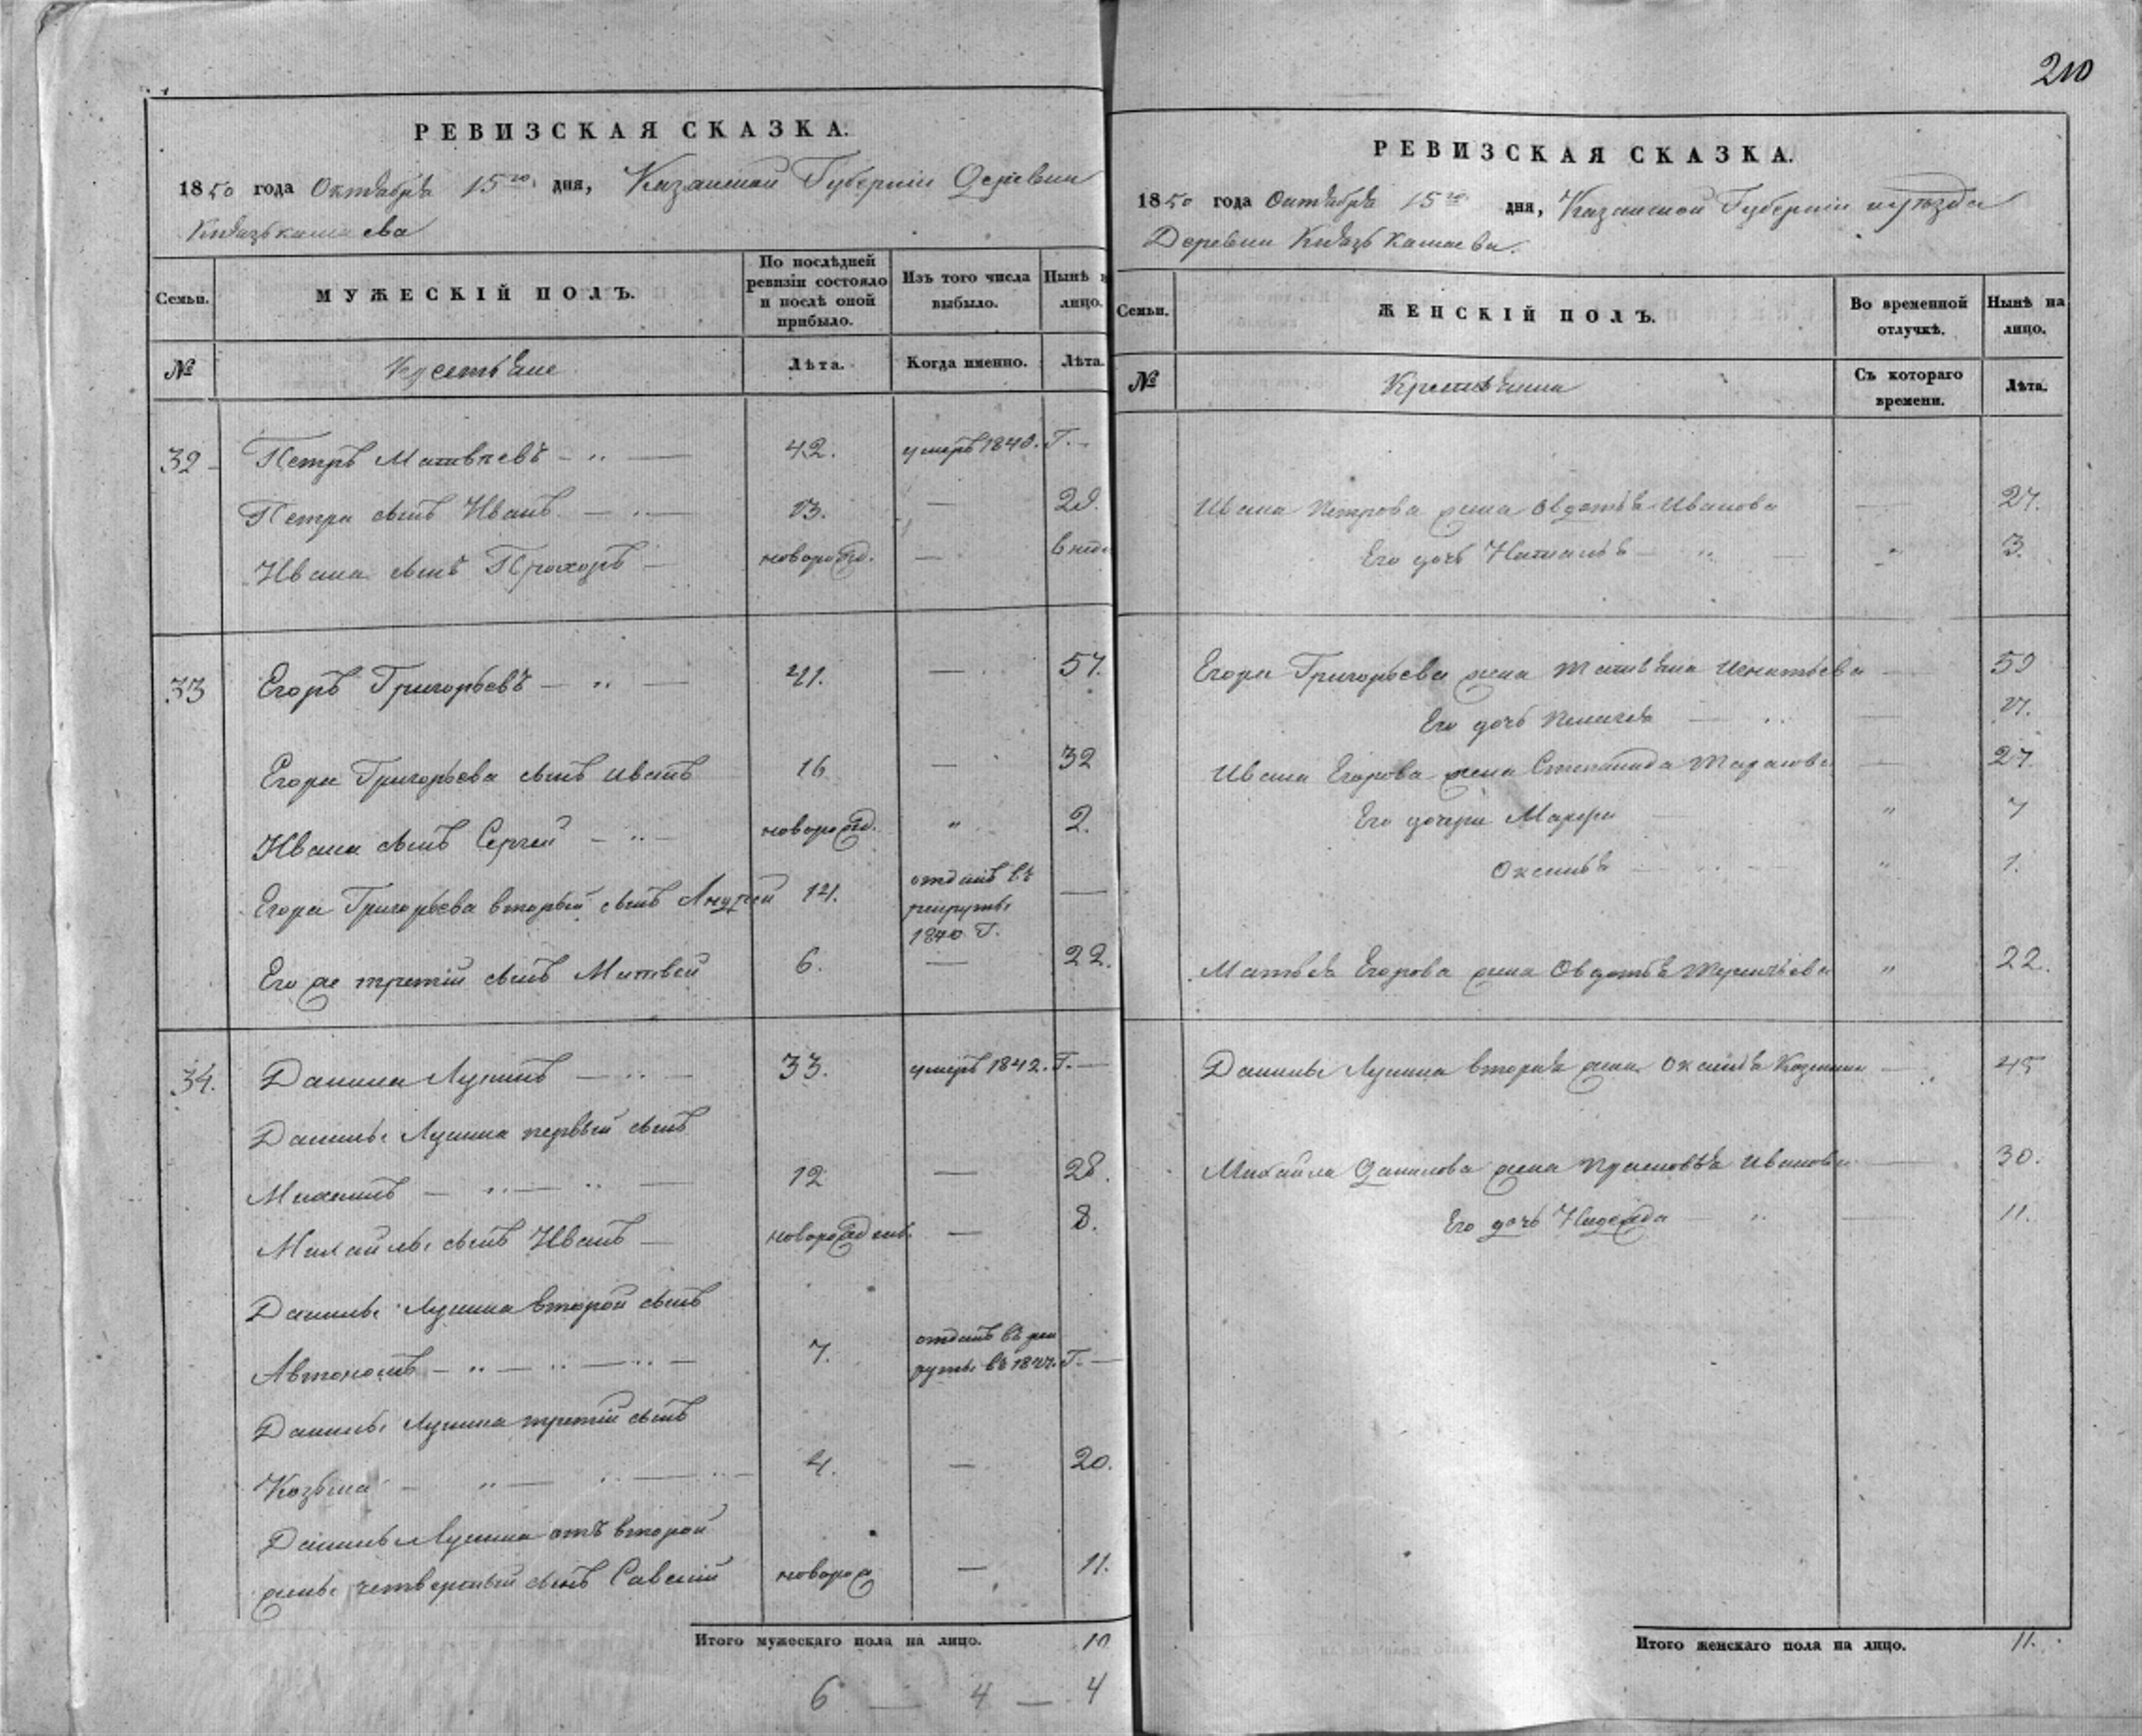 210
РЕВИЗСКАЯ СКАЗКА.
1850 года Октября 15го дня, Казанской Губернии Деревни
Князькамаева
Семьи. МУЖЕСКІЙ ПОЛЪ. По послѣдней ревизіи состояло и послѣ оной прибыло. Изъ того числа выбыло. Нынѣ на лицо.
№ Лѣта. Когда именно. Лѣта.
32 Петръ Матвѣевъ 42. умеръ 1840. Г.
Петра сынъ Иванъ 13. — 29.
Ивана сынъ Прохоръ новорожд. —
33 Егоръ Григорьевъ 41. — 57.
Егора Григорьева сынъ Иванъ 16 — 32
Ивана сынъ Сергей новорожд. " 2.
Егора Григорьева вторый сынъ Андрей 14. отданъ въ
рекруты
1840 Г.
Его же третій сынъ Матвей 6. — 22.
34. Данила Лукинъ 33. умеръ 1842. Г.
Данилы Лукина первый сынъ
Михаилъ 12 — 28.
Михайлы сынъ Иванъ новорожденъ. — 8.
Данилы Лукина второй сынъ
Автономъ 7. отданъ въ рек
руты въ 1844. Г.
Данилы Лукина третій сынъ
Козьма 4. — 20.
Данилы Лукина отъ второй
жены четвертый сынъ Савелій новорож — 11.
Итого мужескаго пола на лицо. 10
6 — 4 — 4
РЕВИЗСКАЯ СКАЗКА.
1850 года Октября 15го дня, Казанской Губерніи и уѣзда
Деревни Князь Камаева.
Семьи. ЖЕНСКІЙ ПОЛЪ. Во временной отлучкѣ. Нынѣ на лицо.
№ Съ котораго времени. Лѣта.
Ивана Петрова жена Овдотья Иванова — 27.
Его дочь Наталья " 3.
Егора Григорьева жена Татьяна Игнатьева — 59
Его дочь Пелагея — 17.
Ивана Егорова жена Степанида Тарасова — 27.
Его дочери Марфа " 7
Оксинья " 1.
Матвея Егорова жена Овдотья " 22.
Данилы Лукина вторая жена Оксинья Козмина — 45
Михайла Данилова жена Прасковья Иванова — 30.
Его дочь Надежда — 11.
Итого женскаго пола на лицо. 11.